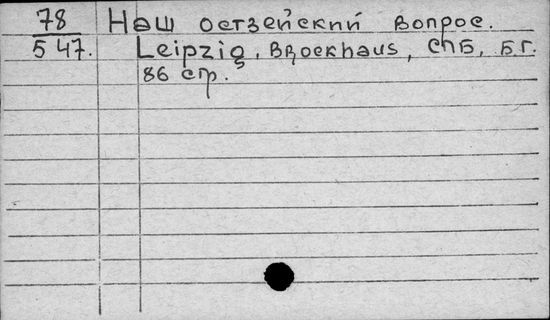 78 Наш остзейский вопрос.
547. Leipzig, Brockhaus, СПБ, Б.Г.
86 стр.